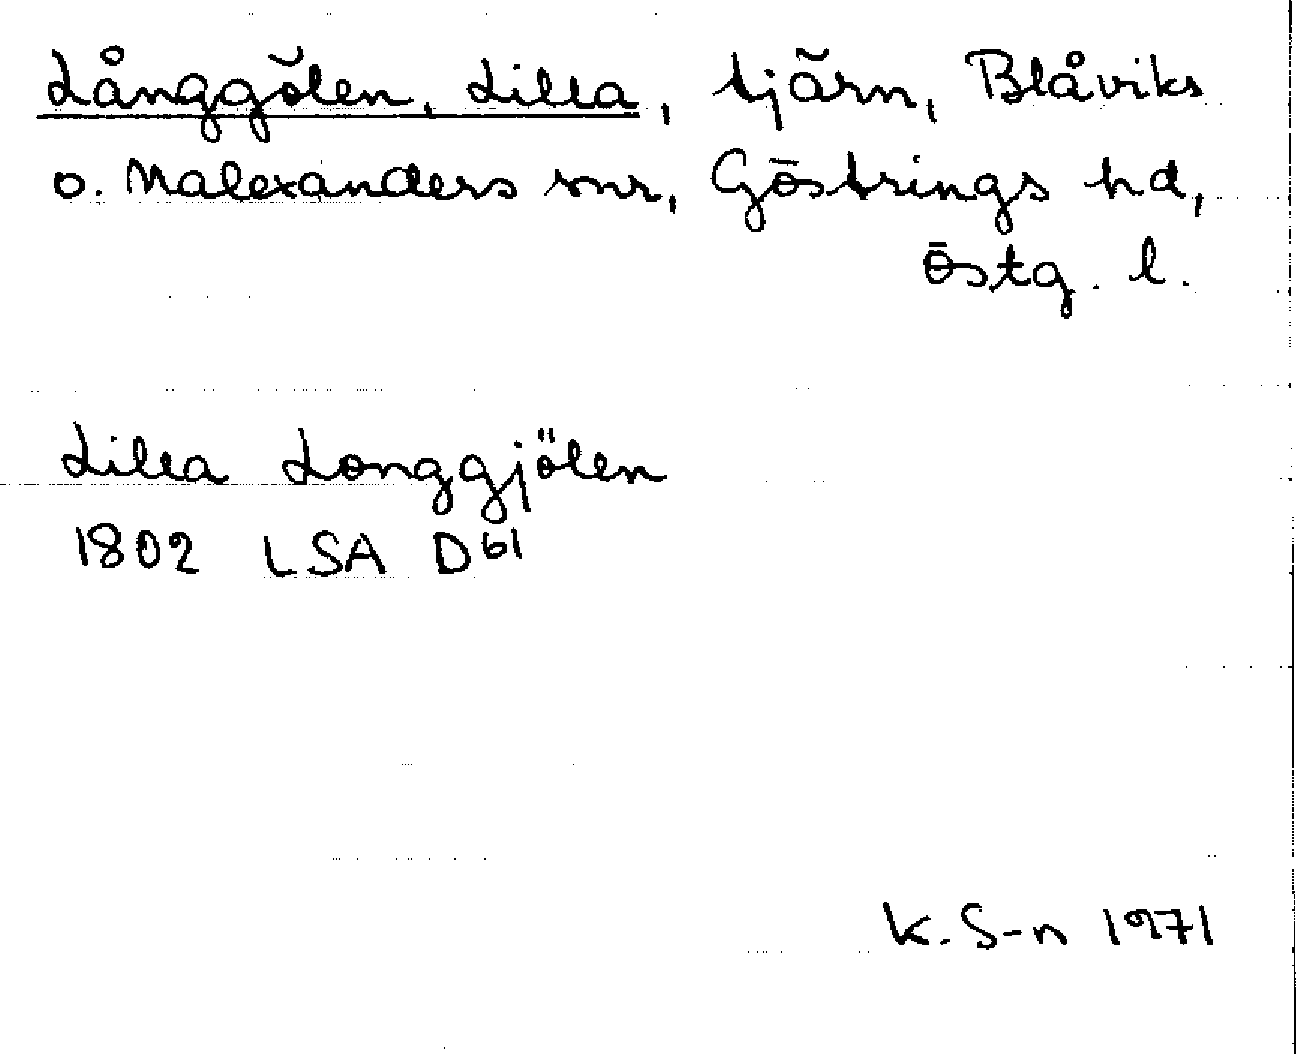 Långgölen, Lilla, tjärn, Blåviks
o. Malexanders snr, Göstrings hd,
Östg. l.
Lilla Longgjölen
1802 LSA D61
K. S-n 1971